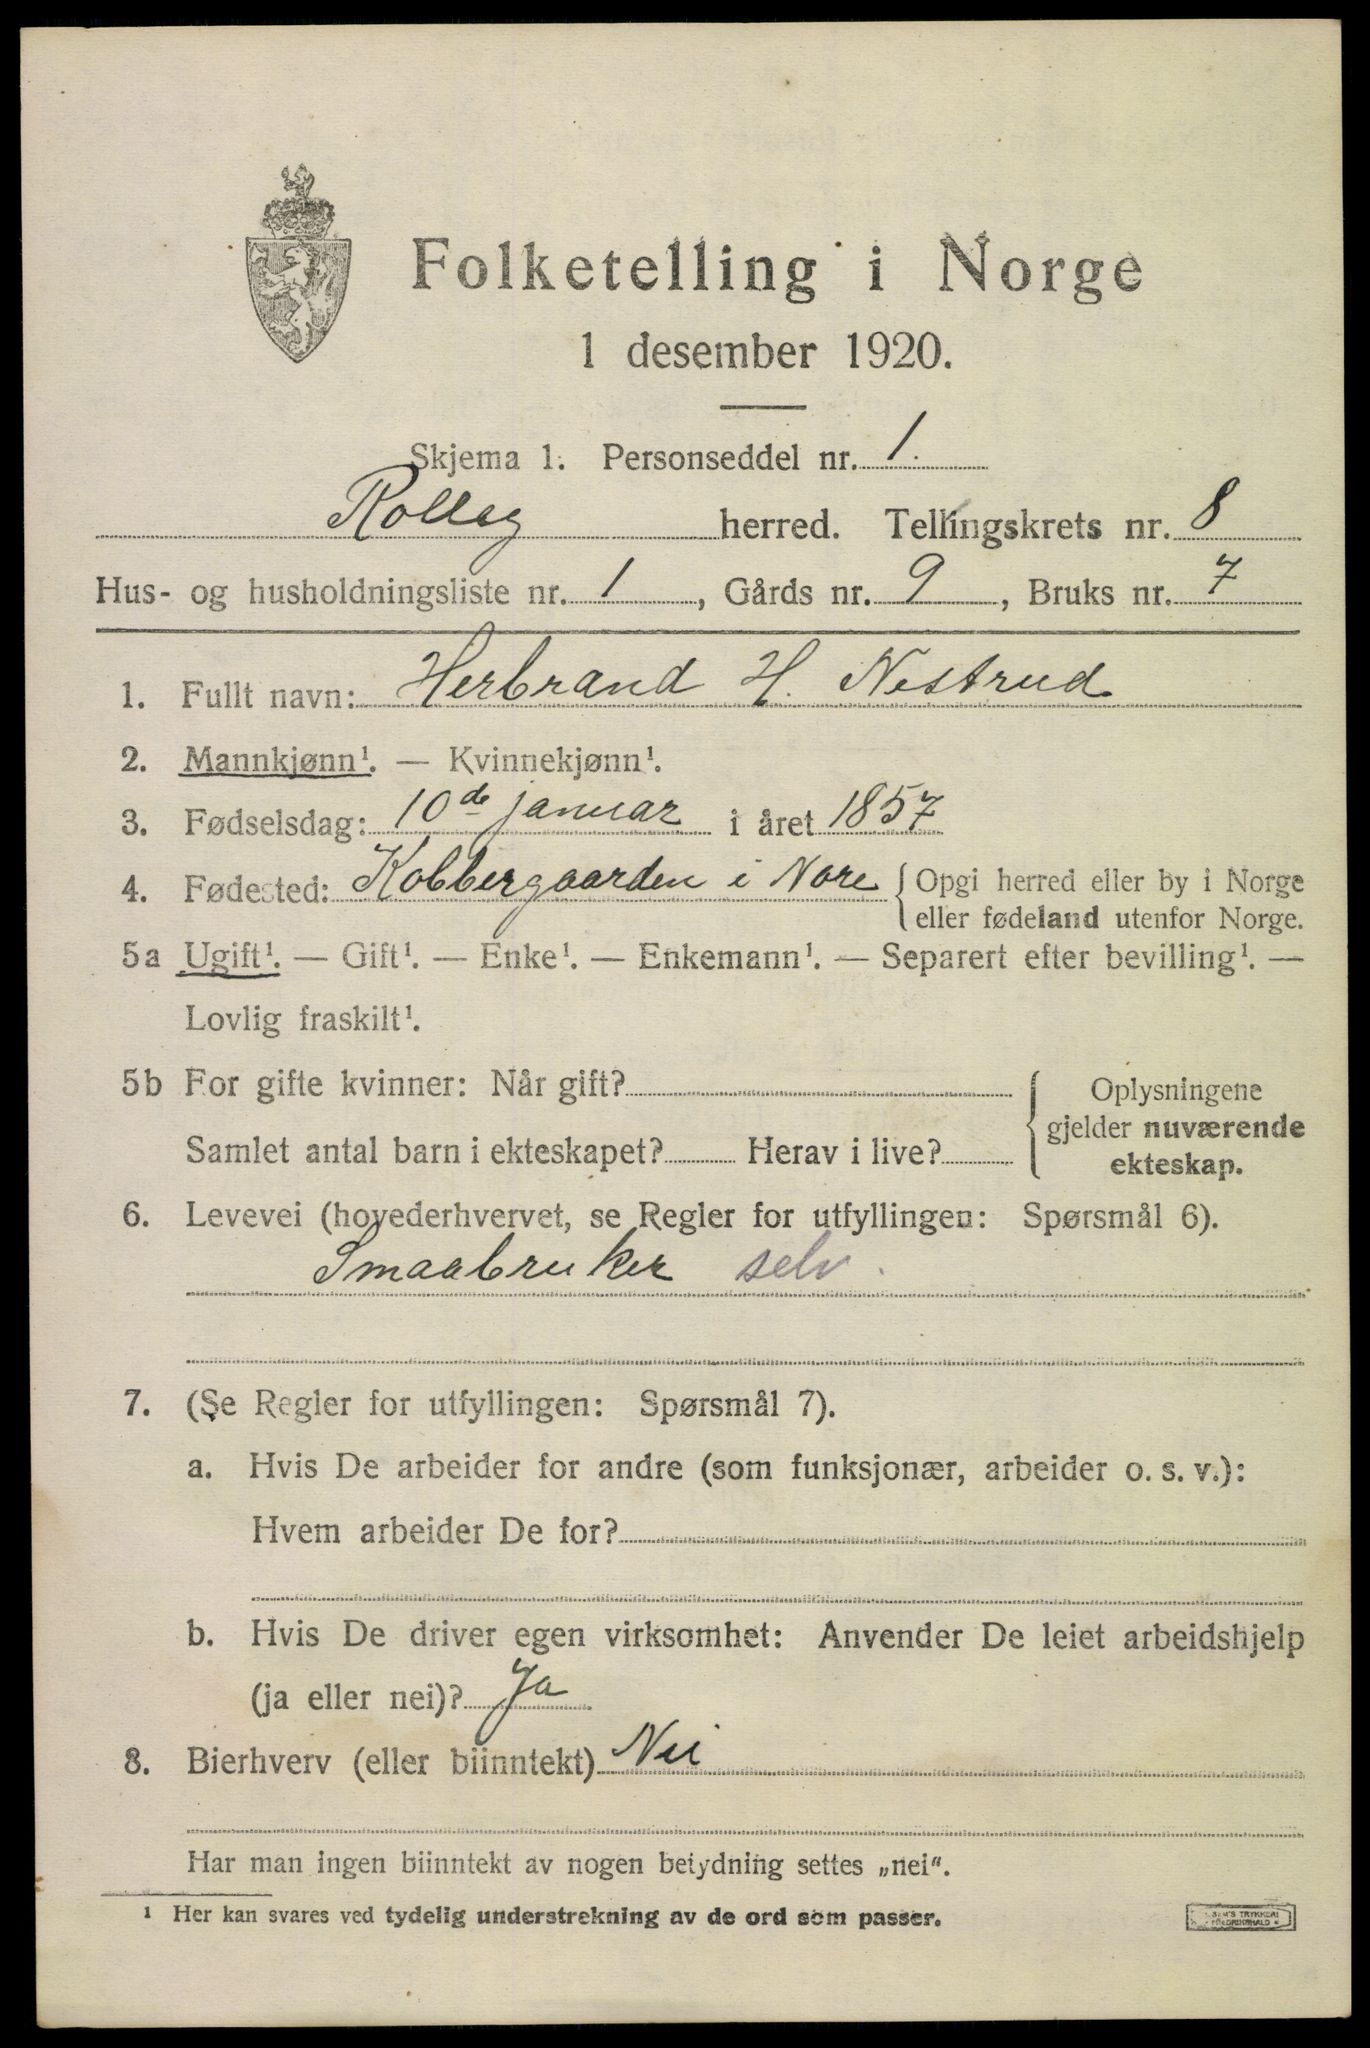 Folketelling i Norge
1 desember 1920.
Skjema 1. Personseddel nr. 1.
Rolleg herred. Tellingskrets nr. 8
Hus- og husholdningsliste nr. 1, Gårds nr. 9, Bruks nr. 7
1. Fullt navn: Herbrand H. Nestrud
2. Mannkjønn¹. — Kvinnekjønn¹.
3. Fødselsdag: 10de januar i året 1857
4. Fødested: Kobbergaarden i Nore { Opgi herred eller by i Norge
eller fødeland utenfor Norge.
5a Ugift¹. — Gift¹. — Enke¹. — Enkemann¹. — Separert efter bevilling¹. —
Lovlig fraskilt¹.
5b For gifte kvinner: Når gift?
Samlet antal barn i ekteskapet? Herav i live?
Oplysningene
gjelder nuværende
ekteskap.
6. Levevei (hovederhvervet, se Regler for utfyllingen: Spørsmål 6).
Smaabruker selv.
7. (Se Regler for utfyllingen: Spørsmål 7).
a. Hvis De arbeider for andre (som funksjonær, arbeider o. s. v.):
Hvem arbeider De for?
b. Hvis De driver egen virksomhet: Anvender De leiet arbeidshjelp
(ja eller nei)? Ja
8. Bierhverv (eller biinntekt) Nei
Har man ingen biinntekt av nogen betydning settes „nei“.
¹ Her kan svares ved tydelig understrekning av de ord som passer.
TRYKKERI
FREDRIKSHALD